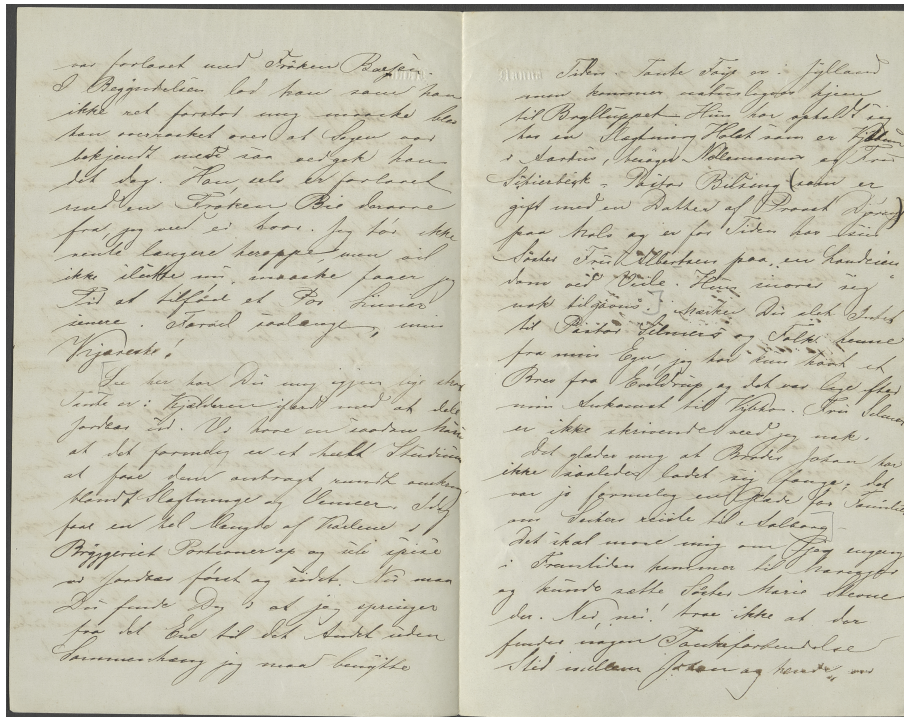 var forlovet med Frøken Boesen.
I Begyndelsen lod han som han
ikke ret forstod mig maaske blev
han overrasket over at Sagen var
bekjendt men saa vedgik han
det dog. Han selv er forlovet
med en Frøken Bie derovre
fra jeg veed ei hvor. Jeg tør ikke
vente længere heroppe, men vil
ikke slutte nu, maaske faaer jeg
Tid at tilføie et Par Linier
senere. Farvel saalænge, min
Kjæreste!
See her har Du mig igjen
Tante er i Kjælderen ifærd med at dele
Jordbær ud. Vi have en saadan
at det formelig er et helt Studium
at faae dem anbragt rundt omkring
blandt Slægtninge og Venner. Idag
faae en hel Mængde af Karlene i
Bryggeriet Portioner og ude spise
vi Jordbær først og sidst. Nu maa
Du finde Dig i at jeg springer
fra det Ene til det Andet uden
Sammenhæng jeg maa benytte
Tiden. Tante er i Jylland
men kommer naturligvis hjem
til Brylluppet. Hun har opholdt sig
hos en Slægtning Holst som er
i Aarhus, besøgt Nellemanns og Fru
Pastor (som er
gift med en Datter af Provst
paa Mols og er for Tiden hos sin
Søster Fru paa en Landeien
dom ved Veile. Hun morer sig
nok tilgavns. Mærker Du slet Intet
til Pastor og Folk henne
fra min Egn, jeg har kun havt et
Brev fra og det var lige efter
min Ankomst til Kjøbhvn. Fru
er ikke skrivende veed jeg nok.
Det glæder mig at Broder Johan har
ikke saaledes ladet sig fange, det
var jo formelig en Glæde for Familien
om Søsters reiste til Aalborg
Det skal more mig om jeg engang
i Fremtiden kommer til
og kunde sætte Søster Marie Stevne
der. Nei, nei! troe ikke at der
findes nogen Tankeforbindelse
Sted mellem Johan og hende, vor